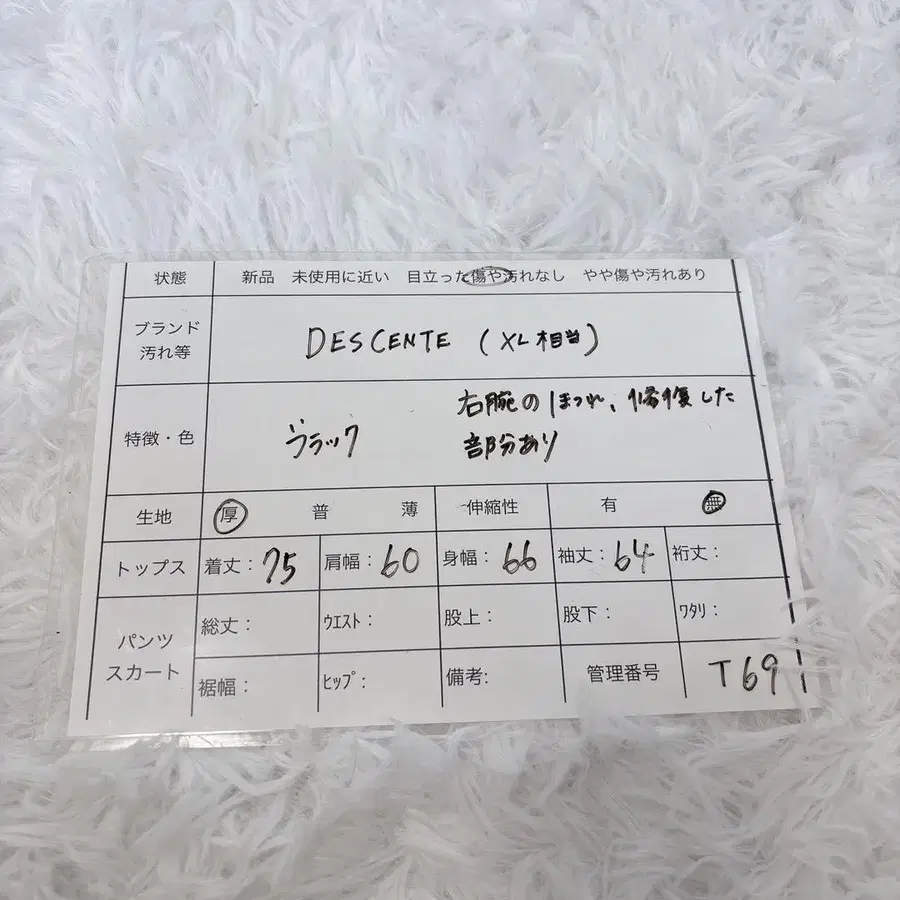 状態 新品 未使用に近い 目立った傷や汚れなし やや傷や汚れあり
ブランド
汚れ等
DESCENTE (XL相当)
特徴・色
ブラック
右腕のほつれ、修復した
部分あり
生地 厚 普 薄 伸縮性 有 無
トップス 着丈:75 肩幅:60 身幅:66 袖丈:64 裄丈:
パンツ
スカート
総丈: ウエスト: 股上: 股下: ワタリ:
裾幅: ヒップ: 備考: 管理番号 T69